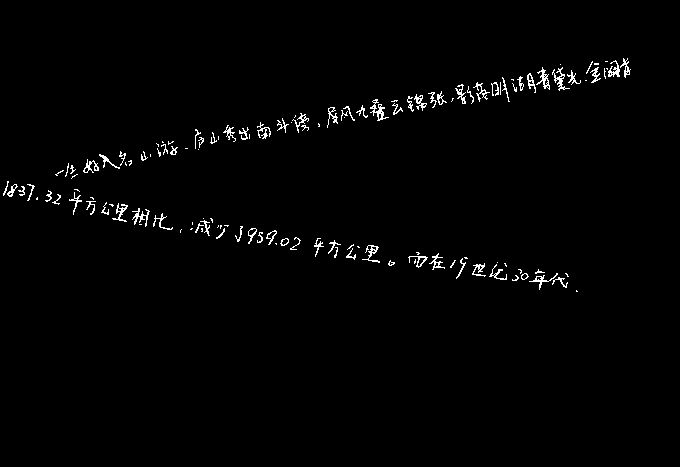 一生好入名山游、庐山秀出南斗傍，屏风九叠云锦张，影落明湖青黛光、金阙前
1837.32平方公里相比，减少了959.02平方公里。而在19世纪30年代，